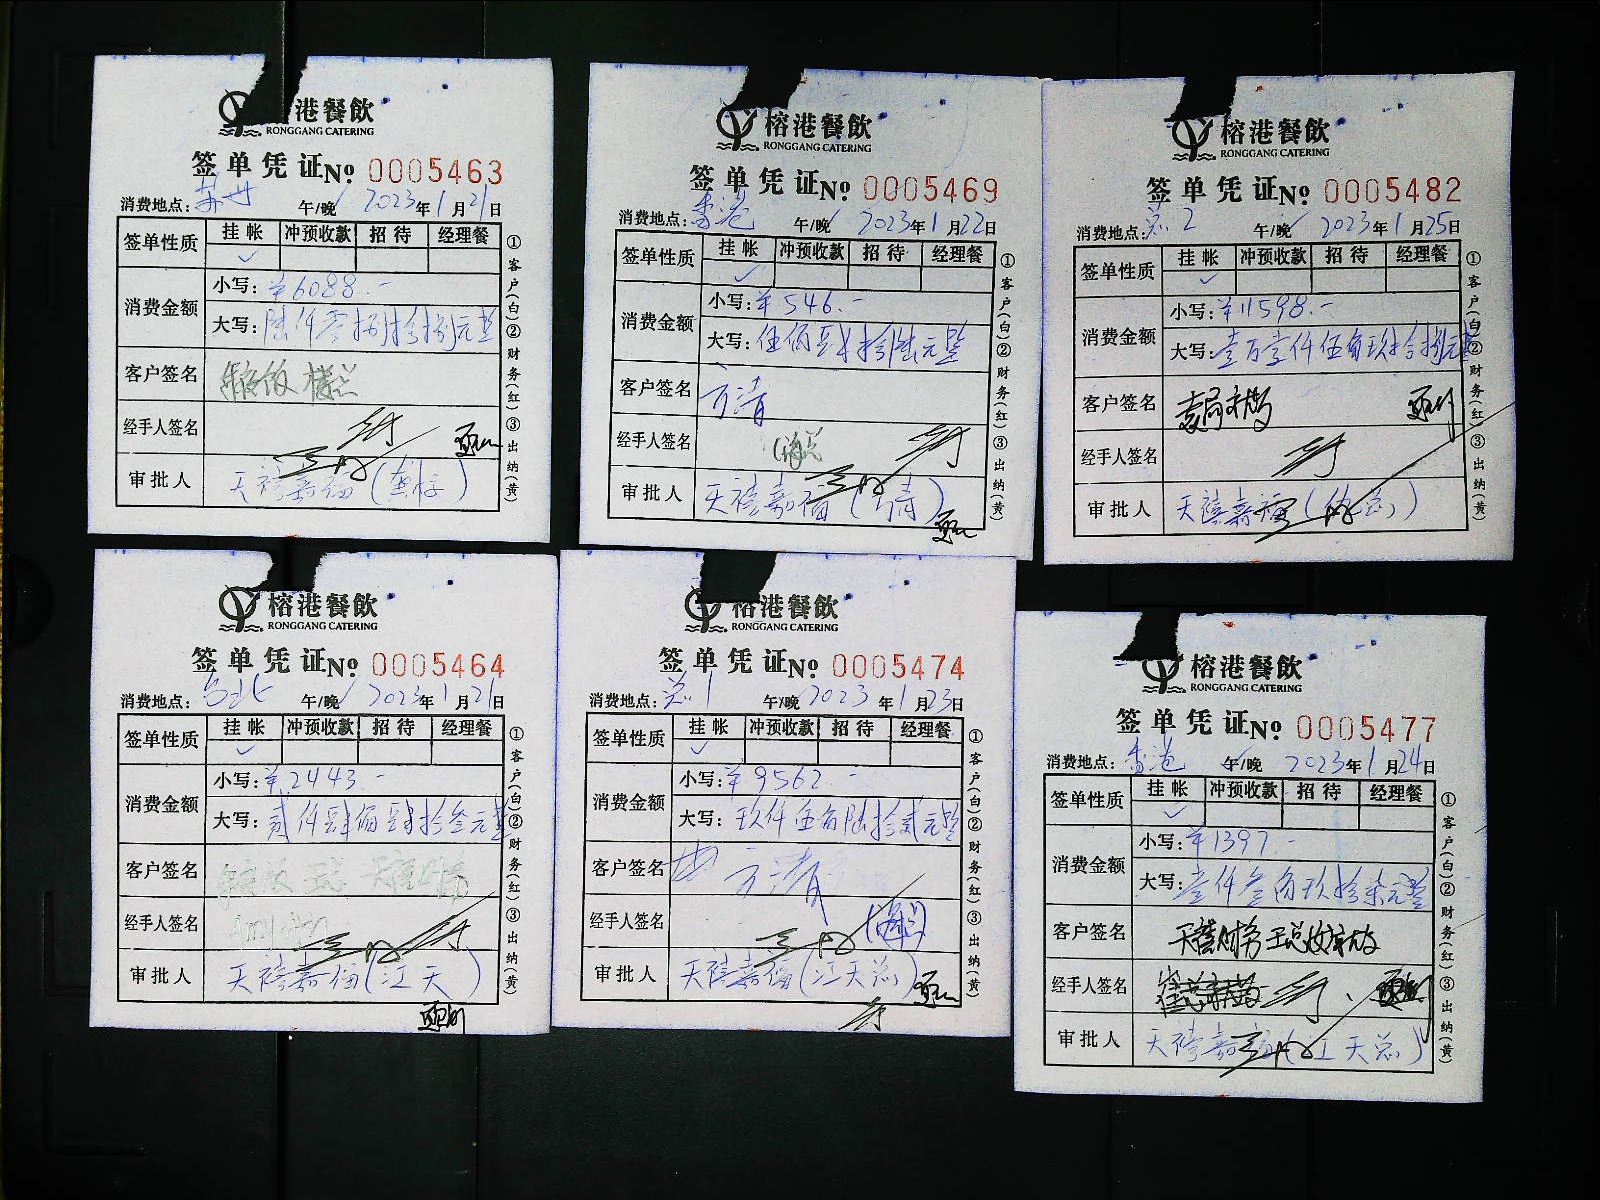 港餐飲
RONGGANG CATERING
签单凭证No 0005463
消费地点: 午/晚 2023年1月21日
签单性质 挂帐 冲预收款 招待 经理餐
消费金额 小写: ¥6088.-
大写: 陆仟零捌拾捌元整
客户签名
经手人签名
审批人 天禧嘉福
①客户(白)②财务(红)③出纳(黄)
榕港餐飲
RONGGANG CATERING
签单凭证No 0005469
消费地点: 香港 午/晚 2023年1月22日
签单性质 挂帐 冲预收款 招待 经理餐
消费金额 小写: ¥546.-
大写: 伍佰肆拾陆元整
客户签名 方清
经手人签名
审批人 天禧嘉福(方清)
①客户(白)②财务(红)③出纳(黄)
榕港餐飲
RONGGANG CATERING
签单凭证No 0005482
消费地点: 总2 午/晚 2023年1月25日
签单性质 挂帐 冲预收款 招待 经理餐
消费金额 小写: ¥11598.-
大写: 壹万壹仟伍佰玖拾捌元整
客户签名
经手人签名
审批人 天禧嘉福
①客户(白)②财务(红)③出纳(黄)
榕港餐飲
RONGGANG CATERING
签单凭证No 0005464
消费地点: 台北 午/晚 2023年1月21日
签单性质 挂帐 冲预收款 招待 经理餐
消费金额 小写: ¥2443.-
大写: 贰仟肆佰肆拾叁元整
客户签名
经手人签名
审批人 天禧嘉福(江天)
①客户(白)②财务(红)③出纳(黄)
榕港餐飲
RONGGANG CATERING
签单凭证No 0005474
消费地点: 总1 午/晚 2023年1月23日
签单性质 挂帐 冲预收款 招待 经理餐
消费金额 小写: ¥9562.-
大写: 玖仟伍佰陆拾贰元整
客户签名 方清
经手人签名
审批人 天禧嘉福(江天总)
①客户(白)②财务(红)③出纳(黄)
榕港餐飲
RONGGANG CATERING
签单凭证No 0005477
消费地点: 香港 午/晚 2023年1月24日
签单性质 挂帐 冲预收款 招待 经理餐
消费金额 小写: ¥1397.-
大写: 壹仟叁佰玖拾柒元整
客户签名 天禧财务王总
经手人签名
审批人 天禧嘉福(江天总)
①客户(白)②财务(红)③出纳(黄)